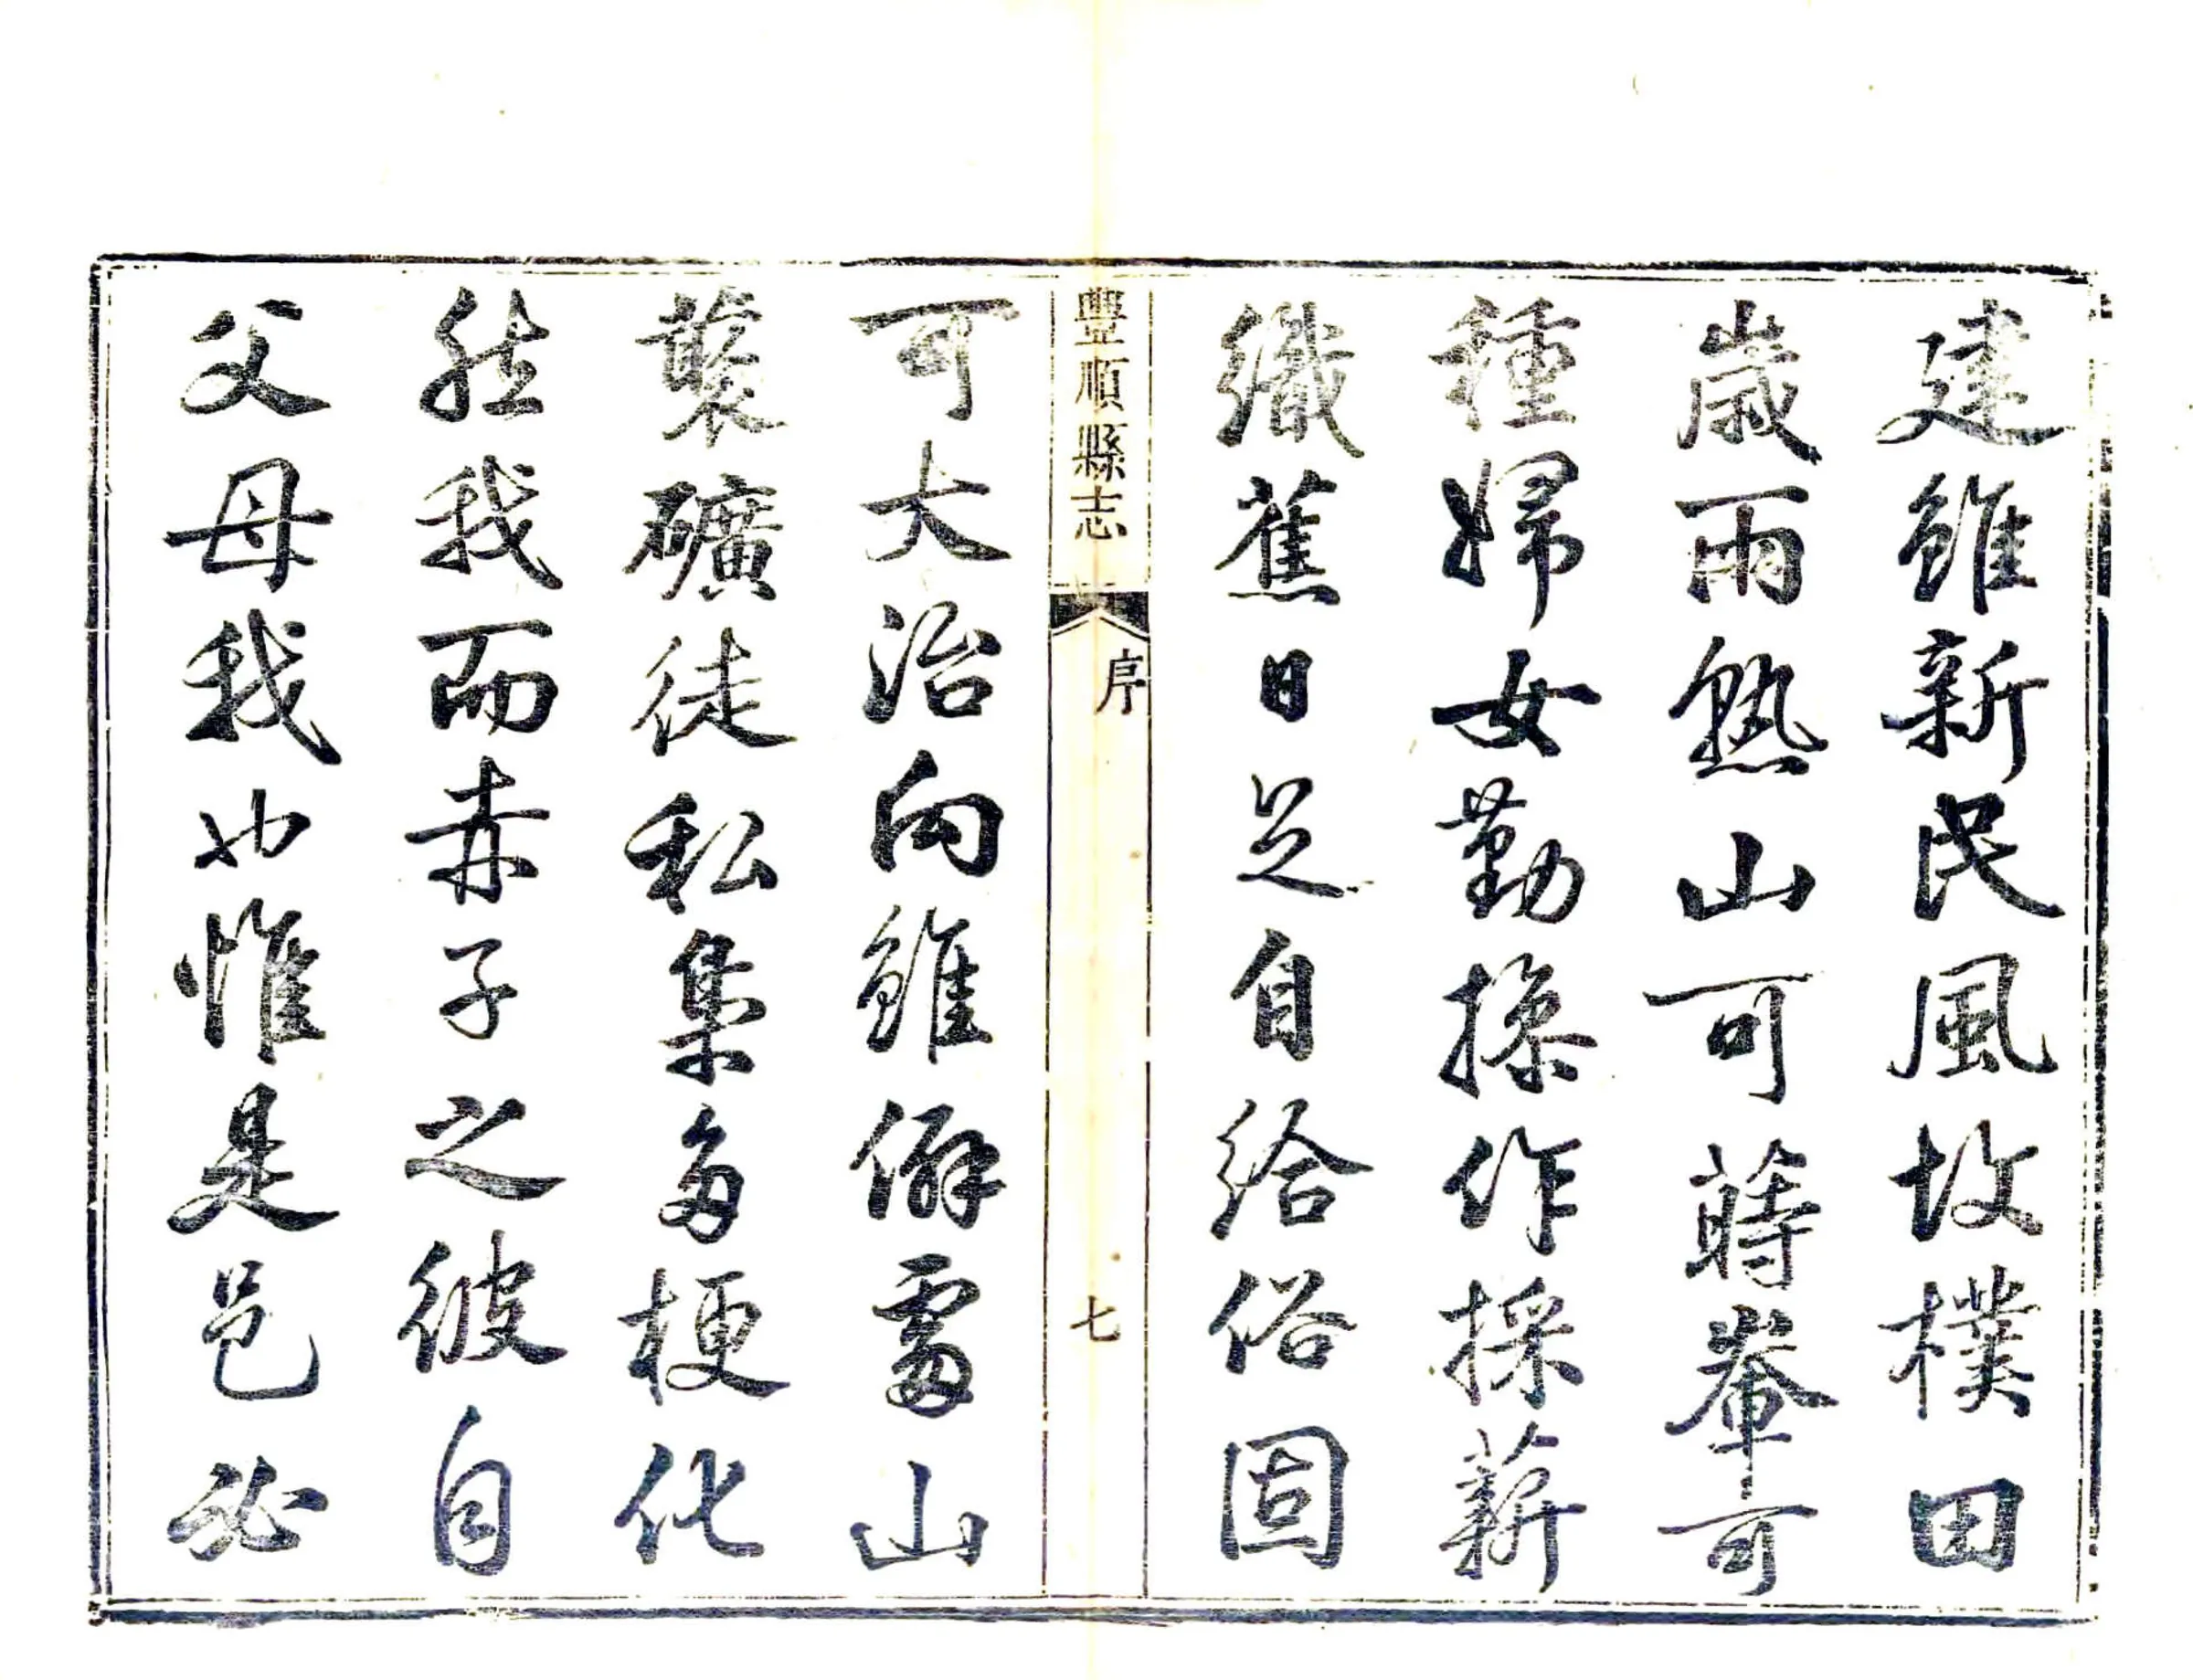 建雖新民風故樸田
歲兩熟山可蒔輋可
種婦女勤操作採薪
織蕉日足自給俗固
豐順縣志 序 七
可大治向雖僻處山
叢礦徒私集多梗化
然我而赤子之彼自
父母我也惟是邑